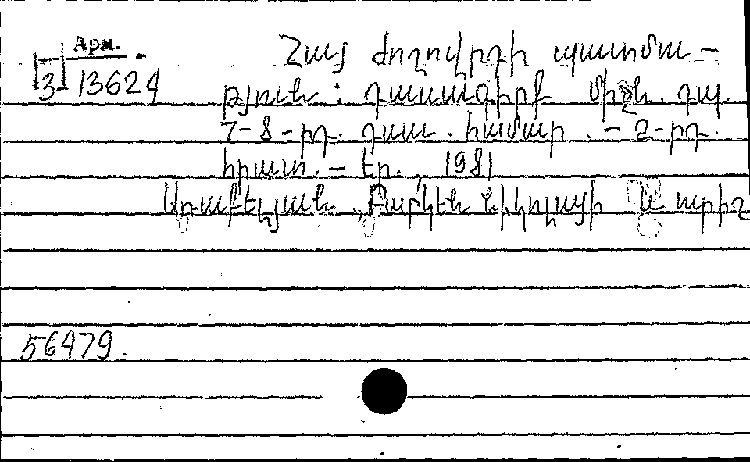 Арм.
[3] 13624
Հայ ժողովրդի պատմա-
թյուն: Դասագիրք միջն. դպ.
7-8-րդ. դաս. համար. - 2-րդ.
հրատ. - Եր., 1981
Առաքելյան Բաբկեն Նիկոլայի և ուրիշ
56479.